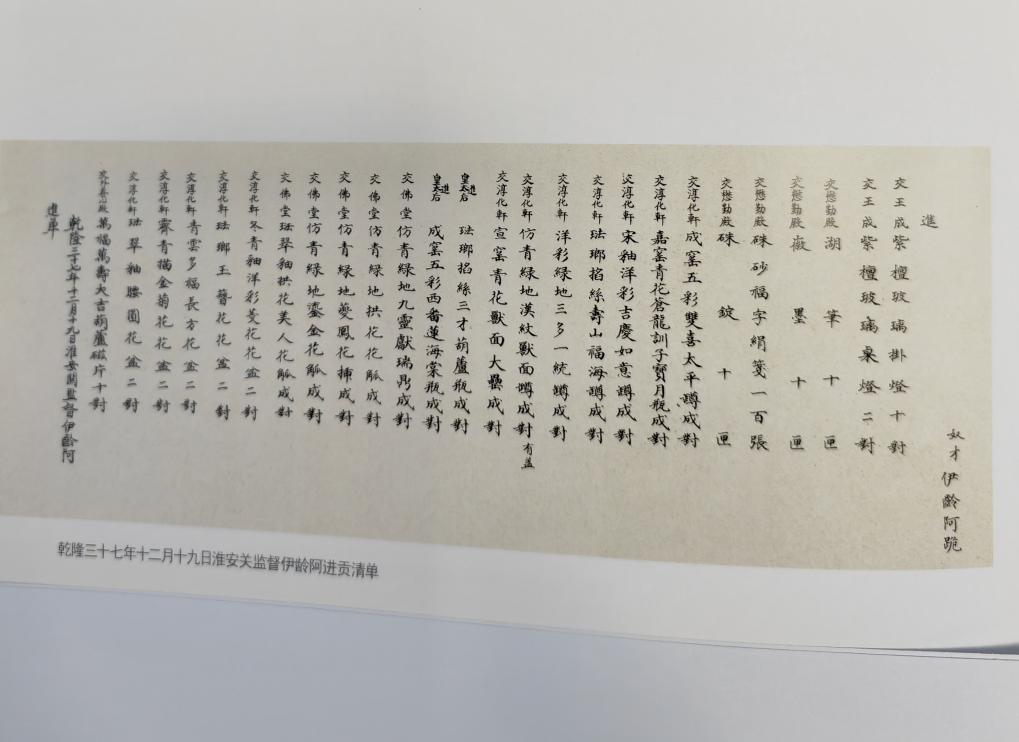 奴才伊齡阿跪
進
交王成紫檀玻璃掛燈十對
交王成紫檀玻璃桌燈二對
交懋勤殿湖筆十匣
交懋勤殿徽墨十匣
交懋勤殿硃砂福字絹箋一百張
交懋勤殿硃錠十匣
交淳化軒成窑五彩雙喜太平罇成對
交淳化軒嘉窑青花蒼龍訓子寶月瓶成對
交淳化軒宋釉洋彩吉慶如意罇成對
交淳化軒琺瑯掐絲壽山福海罇成對
交淳化軒洋彩綠地三多一統罇成對
交淳化軒仿青綠地漢紋獸面罇成對有盖
交淳化軒宣窑青花獸面大罍成對
皇太后進琺瑯掐絲三才葫蘆瓶成對
皇太后進成窑五彩西番蓮海棠瓶成對
交佛堂仿青綠地九靈獻瑞鼎成對
交佛堂仿青綠地拱花花觚成對
交佛堂仿青綠地夔鳳花插成對
交佛堂仿青綠地鎏金花觚成對
交佛堂琺翠釉拱花美人花觚成對
交淳化軒冬青釉洋彩菱花花盆二對
交淳化軒琺瑯玉簪花花盆二對
交淳化軒青雲多福長方花盆二對
交淳化軒霽青描金菊花花盆二對
交淳化軒琺翠釉腰圓花盆二對
萬福萬壽大吉葫蘆磁片十對
乾隆三十七年十二月十九日淮安關監督伊齡阿
進單
乾隆三十七年十二月十九日淮安关监督伊龄阿进贡清单